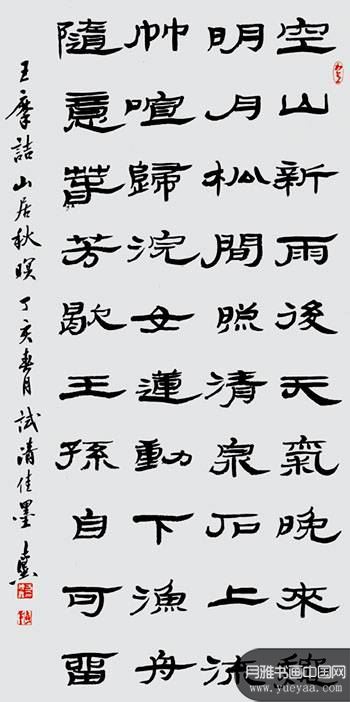 空山新雨後天氣晚來龝
明月松間照清泉石上流
竹喧歸浣女蓮動下漁舟
隨意萅芳歇王孫自可留
王摩詰山居秋暝丁亥春月試清佳墨
月雅书画中国网
www.yueyaa.com